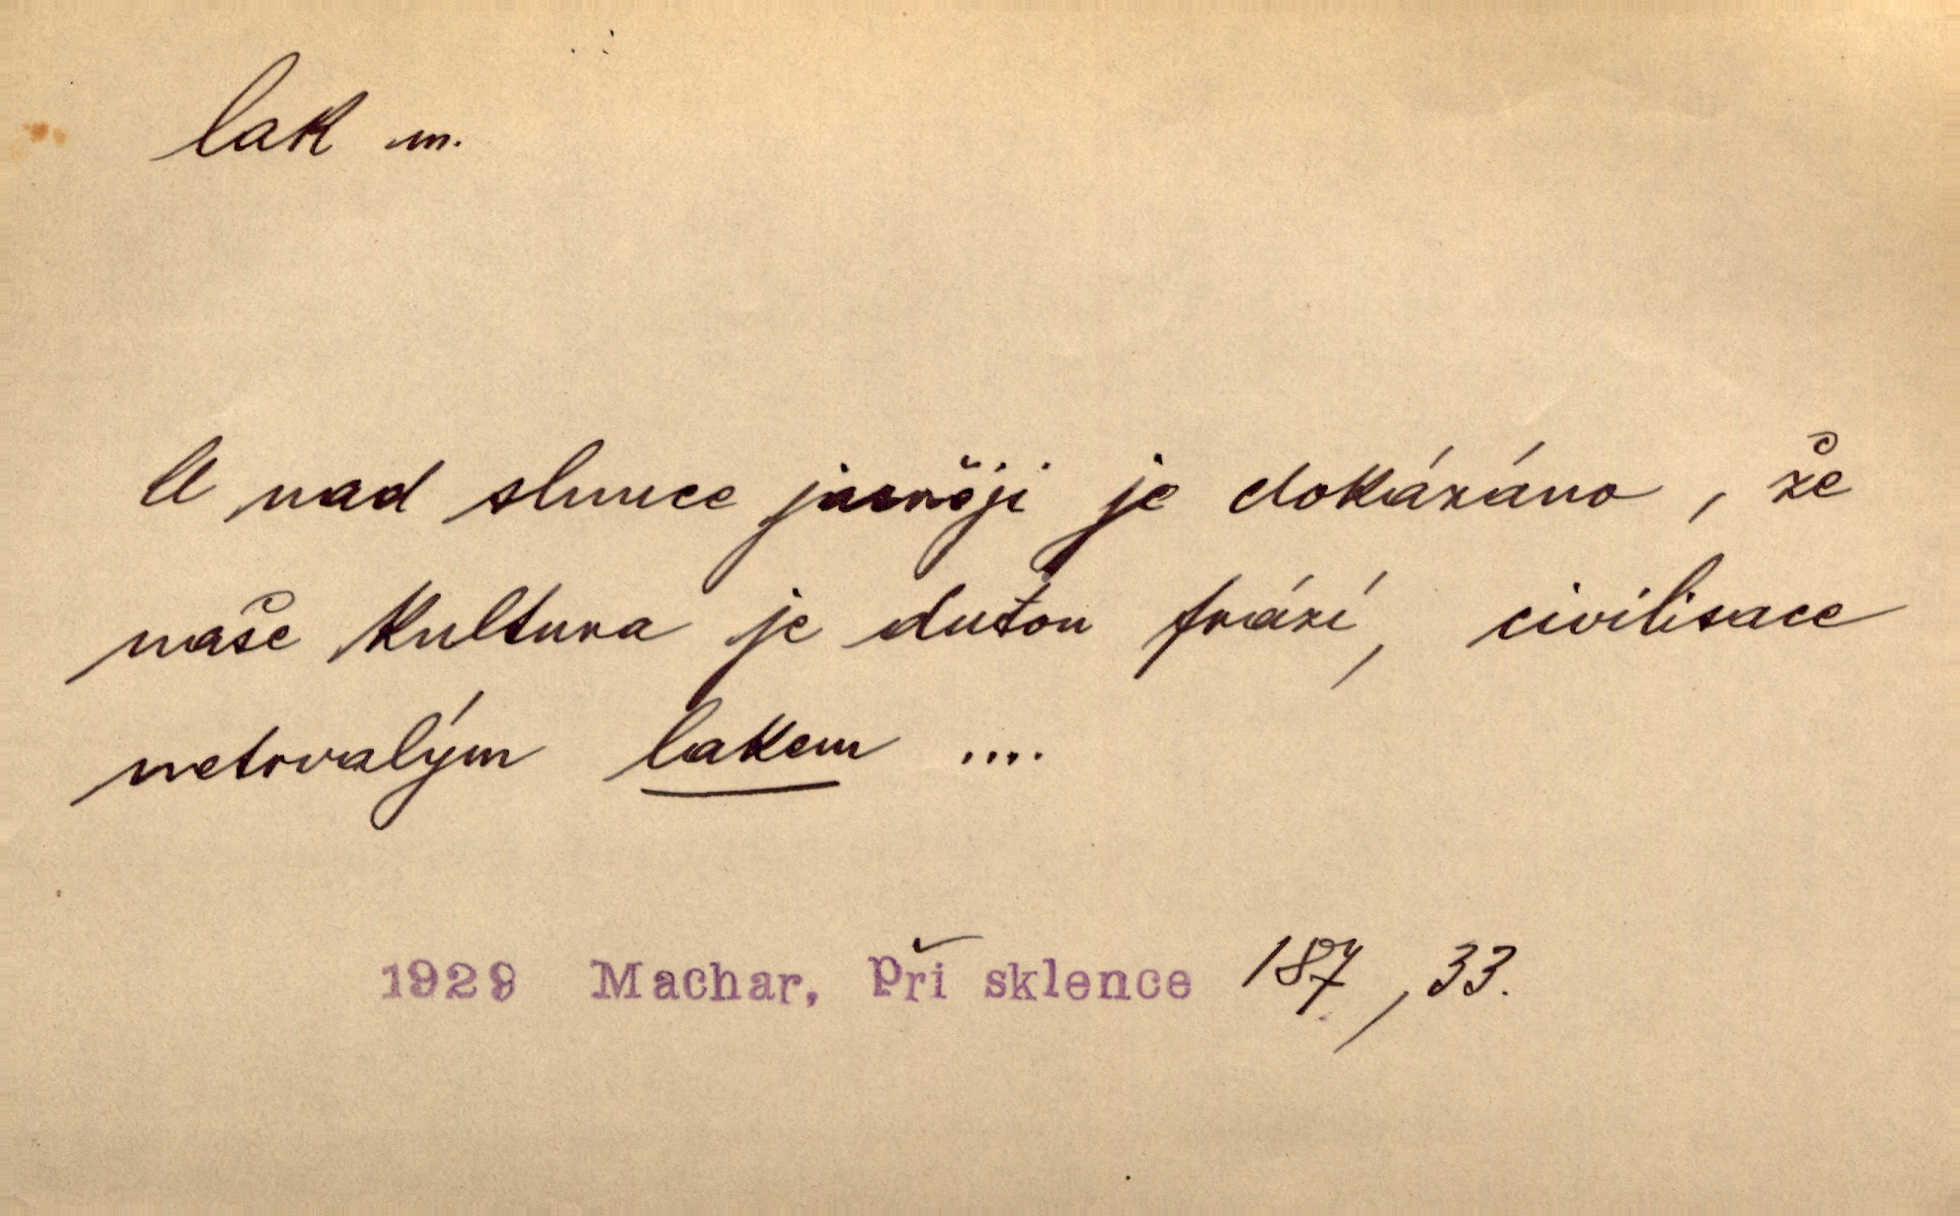 lak m.
A nad slunce jasněji je dokázáno, že
naše kultura je dutou frází, civilisace
netrvalým lakem ....
1929 Machar, Při sklence 187, 33.